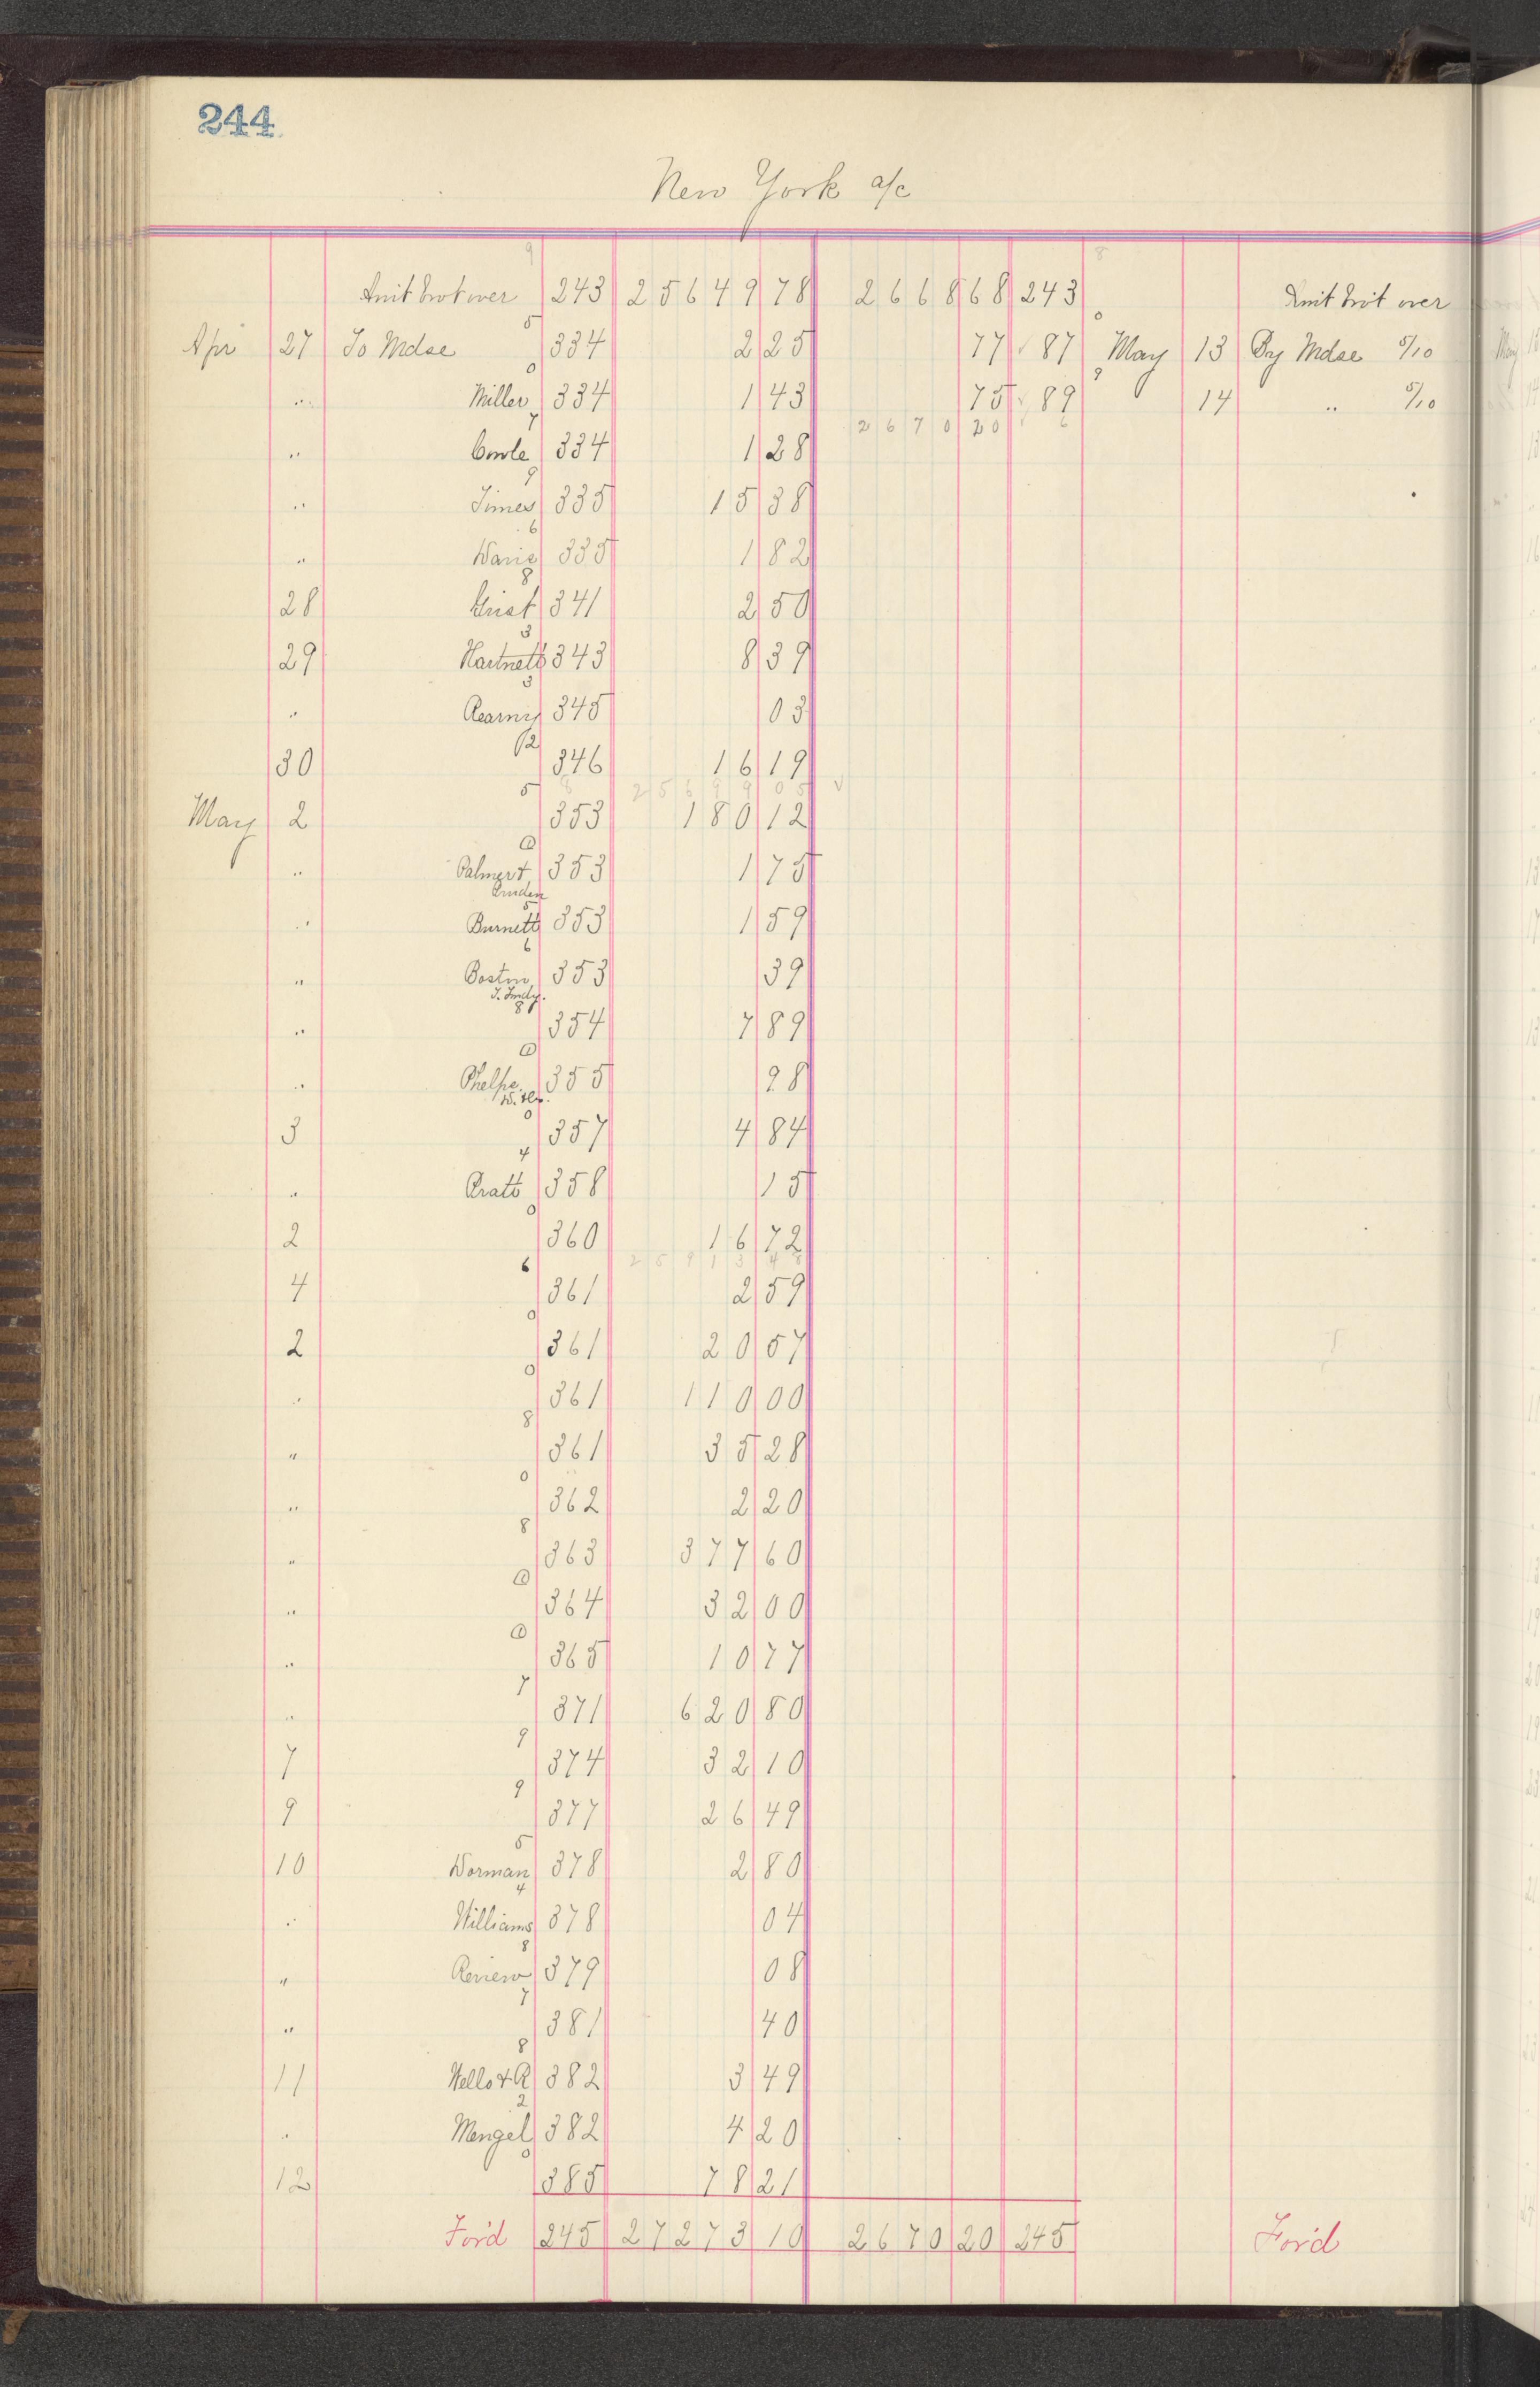 244
New York a/c
Amt brot over 243 25649 78 2668 68 243 Amt brot over
Apr 27 To Mdse 334 2 25 77 87 May 13 By Mdse 5/10
" Miller 334 1 43 75 89 14 " 5/10
2670 20
" Cowle 334 1 28
" Times 335 15 38
" 335 1 82
28 Grist 341 2 50
29 Hartnett 343 8 39
" Kearny 345 03
30 346 16 19
25699 05
May 2 353 180 12
" Palmer & 353 1 75
" Burnett 353 1 59
" Boston 353 39
" 354 7 89
" Phelps 355 98
3 357 4 84
" Pratt 358 15
2 360 16 72
25913 48
4 361 2 59
2 361 20 57
" 361 110 00
" 361 35 28
" 362 2 20
" 363 377 60
" 364 32 00
" 365 10 77
" 371 620 80
7 374 32 10
9 377 26 49
10 Worman 378 2 80
" Williams 378 04
" Review 379 08
" 381 40
11 Wells & R 382 3 49
" Mengel 382 4 20
12 385 78 21
For'd 245 27273 10 2670 20 245 For'd